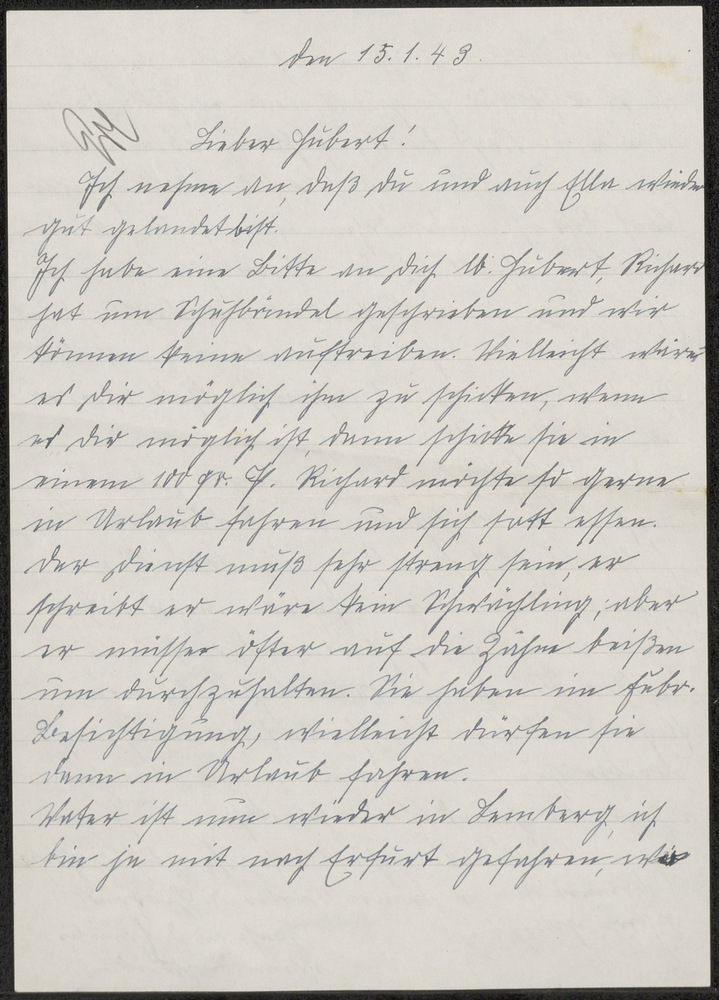 den 15.1.43.
Lieber Hubert!
Ich nehme an, daß du und auch Ella wieder
gut gelandet bist.
Ich habe eine Bitte an dich lb. Hubert, Richard
hat um Schuhbändel geschrieben und wir
können keine auftreiben. Vielleicht wäre
es dir möglich ihm zu schicken, wenn
es dir möglich ist, dann schicke sie in
einem 100 gr. P. Richard möchte so gerne
in Urlaub fahren und sich satt essen.
Der Dienst muß sehr streng sein, er
schreibt er wäre kein Schwächling; aber
er müsse öfter auf die Zähne beißen
um durchzuhalten. Sie haben im Febr.
Besichtigung, vielleicht dürfen sie
dann in Urlaub fahren.
Vater ist nun wieder in Lemberg, ich
bin ja mit nach Erfurt gefahren, wir